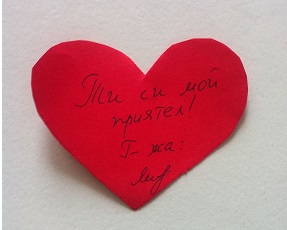 Ти си мой
приятел!
Г-жа: